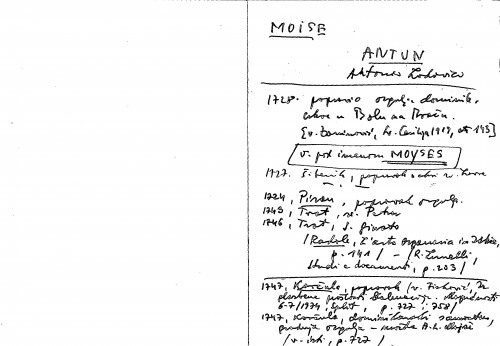 MOISE
ANTUN
Antonio Lodovico
1728. popravio orgulje dominik.
crkve u Bolu na Braču.
[v. Zaninović, Sv. Cecilija 1919, str 145]
v. pod imenom MOYSES
1727. Šibenik, popravak u crkvi sv.
1724, Piran, popravak orgulja.
1743, Trst, sv. Petra
1746, Trst, S. Giusto
/Radole, L'arte organaria in Istria,
p. 141/ - /R. Lunelli,
Studi e documenti, p. 203/
1747, Korčula, popravak /v. Fisković, Iz
glazbene prošlosti Dalmacije. Mogućnosti
6-7/1974, Split, p. 727 i 758/
1747, Korčula, dominikanski samostan,
gradnja orgulja -
/v. isti, p. 727/